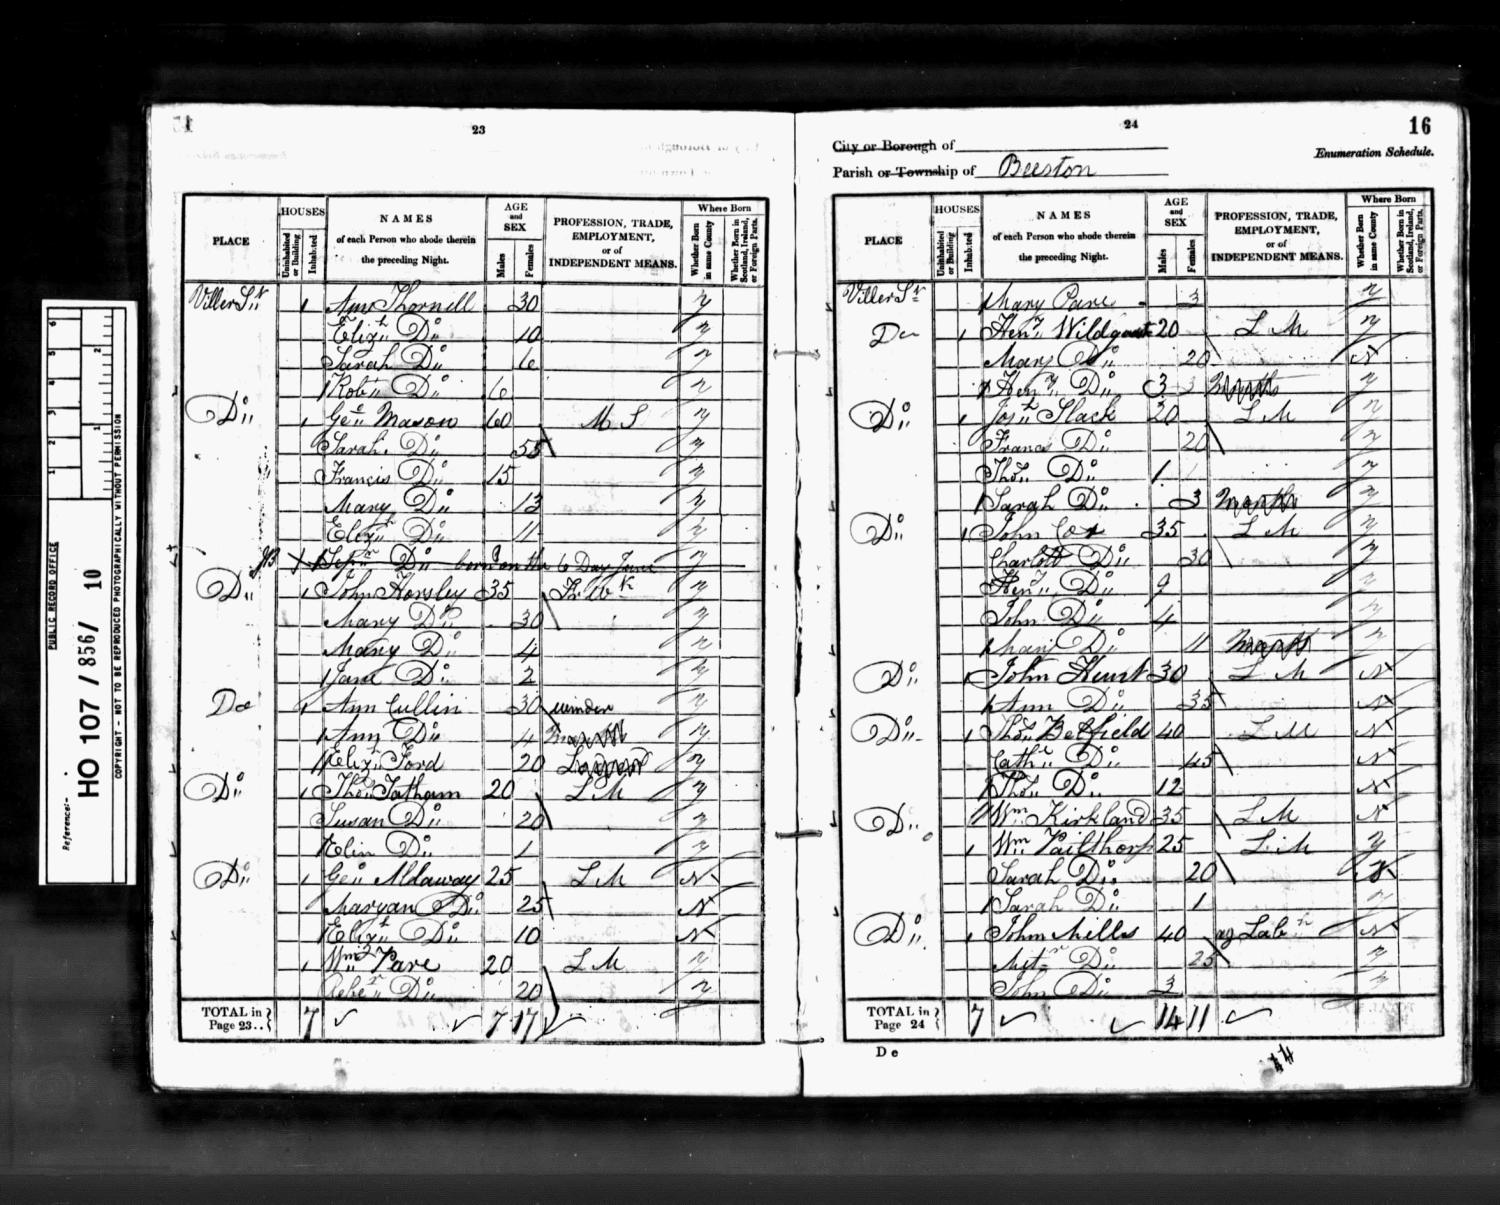 23
PLACE
HOUSES
Uninhabited or Building
Inhabited
NAMES
of each Person who abode therein
the preceding Night.
AGE and SEX
Males
Females
PROFESSION, TRADE,
EMPLOYMENT,
or of
INDEPENDENT MEANS.
Where Born
Whether Born in same County
Whether Born in Scotland, Ireland, or Foreign Parts.
Viller St 1 Ann Thornell 30 y
Elizth Do 10 y
Sarah Do 6 y
Robt Do 6 y
Do 1 Geo Mason 60 M S y
Sarah Do 55 y
Francis Do 15 y
Mary Do 13 y
Elizth Do 11 y
Do born on the 6 Day June y
Do 1 John Horsley 35 F. W. K y
Mary Do 30 y
Mary Do 4 y
Jane Do 2 y
Do 1 Ann Cullin 30 winder y
Ann Do 4 months y
Elizth Ford 20 y
Do 1 Thos Tatham 20 L M y
Susan Do 20 y
Elin Do 1 y
Do 1 Geo Aldaway 25 L M N
Maryan Do 25 N
Elizth Do 10 N
1 Wm Pare 20 L M y
Do 20 y
TOTAL in
Page 23.. 7 7 17
24
16
City or Borough of
Enumeration Schedule.
Parish or Township of Beeston
PLACE
HOUSES
Uninhabited or Building
Inhabited
NAMES
of each Person who abode therein
the preceding Night.
AGE and SEX
Males
Females
PROFESSION, TRADE,
EMPLOYMENT,
or of
INDEPENDENT MEANS.
Where Born
Whether Born in same County
Whether Born in Scotland, Ireland, or Foreign Parts.
Viller St Mary Pare 3 y
Do 1 Heny Wildgoose 20 L M y
Mary Do 20 N
Heny Do 3 months y
Do 1 Josh Slack 20 L M y
Frances Do 20 y
Thos Do 1 y
Sarah Do 3 months y
Do 1 John Cox 35 L M y
Charlott Do 30 y
Heny Do 9 y
John Do 4 y
Mary Do 11 months y
Do 1 John Hunt 30 L M N
Ann Do 35 N
Do 1 Thos Betfield 40 L M N
Cathe Do 45 N
Thos Do 12 N
Do Wm Kirkland 35 L M N
1 Wm Vailthorp 25 L M y
Sarah Do 20 N
Sarah Do 1 y
Do 1 John Mills 40 ag Labr N
Do 25 y
John Do 3 y
TOTAL in
Page 24 7 14 11
D e
14
PUBLIC RECORD OFFICE
Reference:-
HO 107 / 856 / 10
COPYRIGHT - NOT TO BE REPRODUCED PHOTOGRAPHICALLY WITHOUT PERMISSION